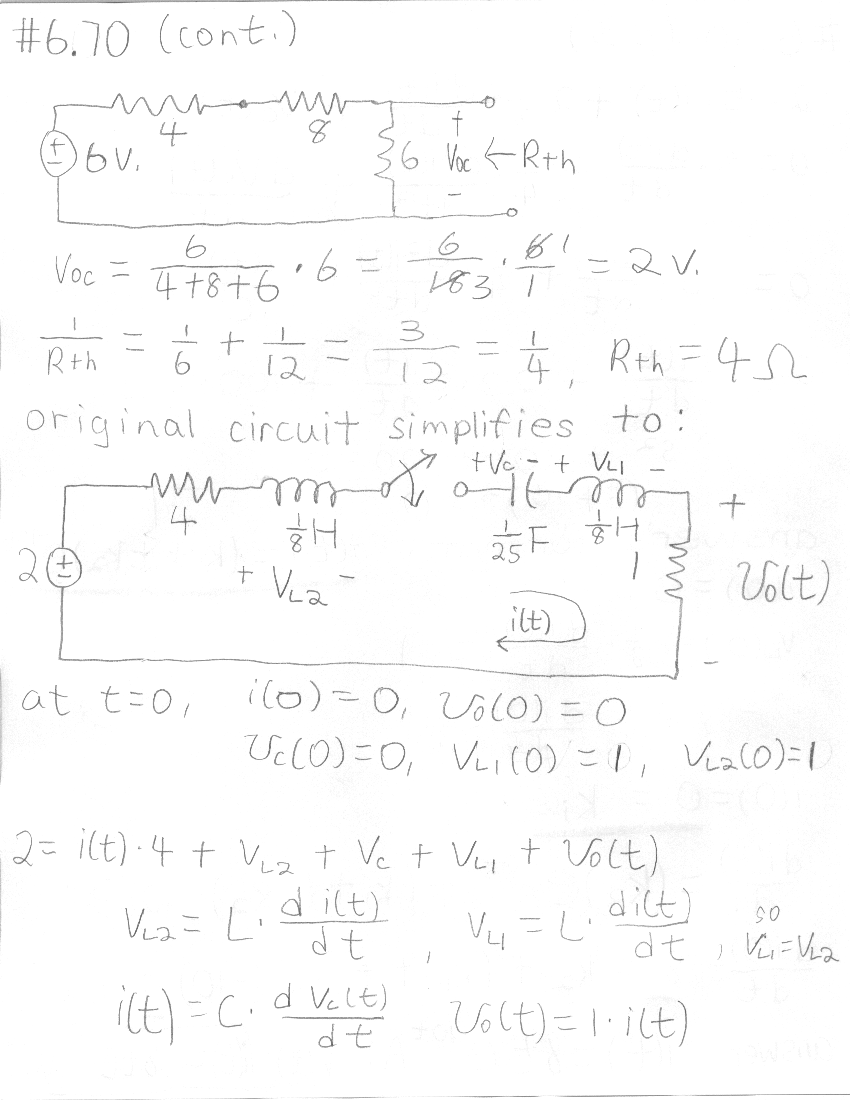 #6.70 (cont.)
4 8
6 V. 6 Voc ← Rth
+
-
Voc = 6/(4+8+6) · 6 = 6/18 3 · 6 1/1 = 2 V.
1/Rth = 1/6 + 1/12 = 3/12 = 1/4, Rth = 4 Ω
original circuit simplifies to:
+ Vc - + VL1 -
4 1/8 H 1/25 F 1/8 H +
2 + VL2 - 1 vo(t)
i(t)
-
at t=0, i(0) = 0, vo(0) = 0
vc(0) = 0, VL1(0) = 1, VL2(0) = 1
2 = i(t)·4 + VL2 + Vc + VL1 + vo(t)
VL2 = L · d i(t)/dt, VL1 = L · di(t)/dt, so VL1 = VL2
i(t) = C · d Vc(t)/dt vo(t) = 1·i(t)